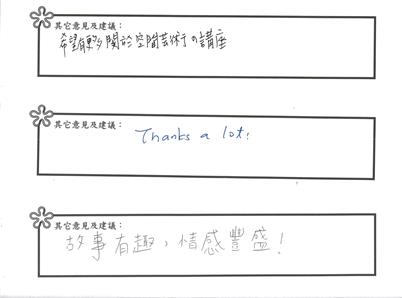 其它意見及建議：
希望有更多關於空間芸術の講座
其它意見及建議：
Thanks a lot!
其它意見及建議：
故事有趣，情感豐盛！